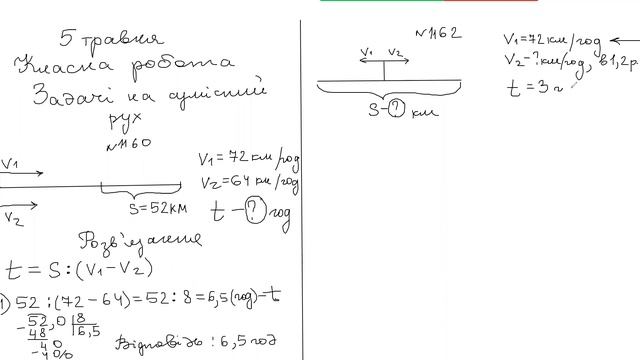 5 травня
Класна робота
Задачі на сумісний
рух
№1160
V1
V2
S=52км
V1=72км/год
V2=64км/год
t-? год
Розв'язання
t=S:(V1-V2)
1) 52:(72-64)=52:8=6,5(год)-t
-52,0|8
48 |6,5
40
-40
Відповідь: 6,5 год
№1162
V1 V2
S-? км
V1=72км/год
V2-?км/год, в1,2р
t=3г